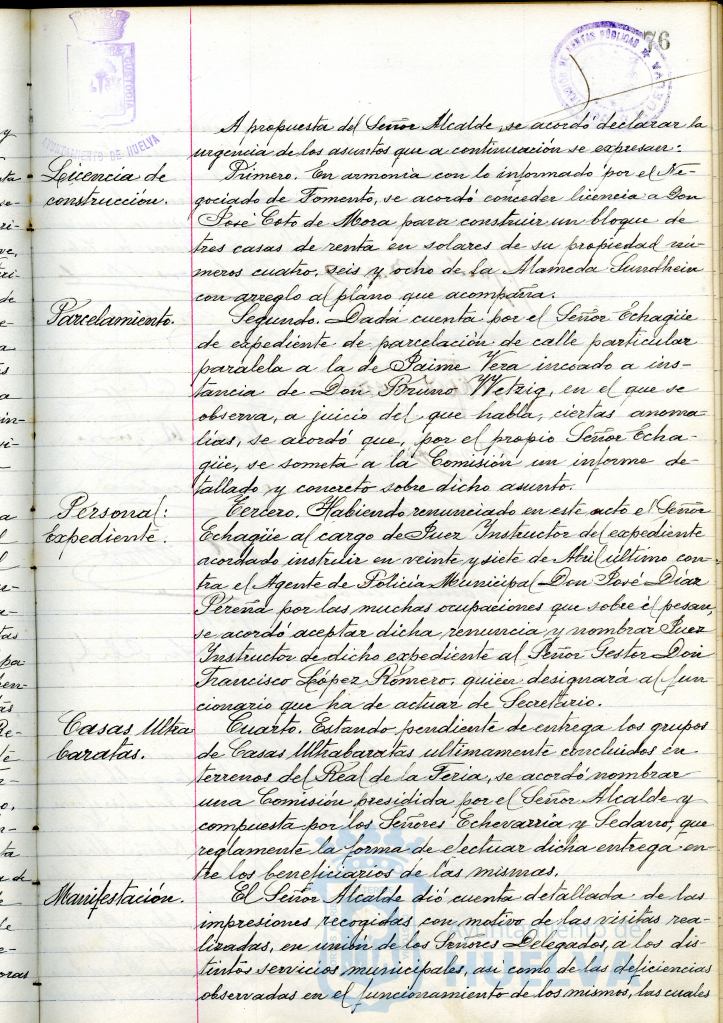 76
AYUNTAMIENTO DE HUELVA
A propuesta del Señor Alcalde, se acordó declarar la
urgencia de los asuntos que a continuación se expresan:
Licencia de
construcción.
Primero. En armonía con lo informado por el Ne-
gociado de Fomento, se acordó conceder licencia a Don
José Coto de Mora para construir un bloque de
tres casas de renta en solares de su propiedad nú-
meros cuatro, seis y ocho de la Alameda Sundhein
con arreglo al plano que acompaña.
Parcelamiento.
Segundo. Dada cuenta por el Señor Echagüe
de expediente de parcelación de calle particular
paralela a la de Jaime Vera incoado a ins-
tancia de Don Bruno Wetzig, en el que se
observa, a juicio del que habla, ciertas anoma-
lías, se acordó que, por el propio Señor Echa-
güe, se someta a la Comisión un informe de-
tallado y concreto sobre dicho asunto.
Personal:
Expediente.
Tercero. Habiendo renunciado en este acto el Señor
Echagüe al cargo de Juez Instructor del expediente
acordado instruir en veinte y siete de Abril último con-
tra el Agente de Policía Municipal Don José Díaz
Pereña por las muchas ocupaciones que sobre él pesan,
se acordó aceptar dicha renuncia y nombrar Juez
Instructor de dicho expediente al Señor Gestor Don
Francisco López Romero, quien designará al fun-
cionario que ha de actuar de Secretario.
Casas Ultra
baratas.
Cuarto. Estando pendiente de entrega los grupos
de Casas Ultrabaratas ultimamente concluidos en
terrenos del Real de la Feria, se acordó nombrar
una Comisión presidida por el Señor Alcalde y
compuesta por los Señores Echevarria y Sedano, que
reglamente la forma de efectuar dicha entrega en-
tre los beneficiarios de las mismas.
Manifestación.
El Señor Alcalde dió cuenta detallada de las
impresiones recogidas con motivo de las visitas rea-
lizadas, en unión de los Señores Delegados, a los dis-
tintos servicios municipales, así como de las deficiencias
observadas en el funcionamiento de los mismos, las cuales
Ayuntamiento de
HUELVA